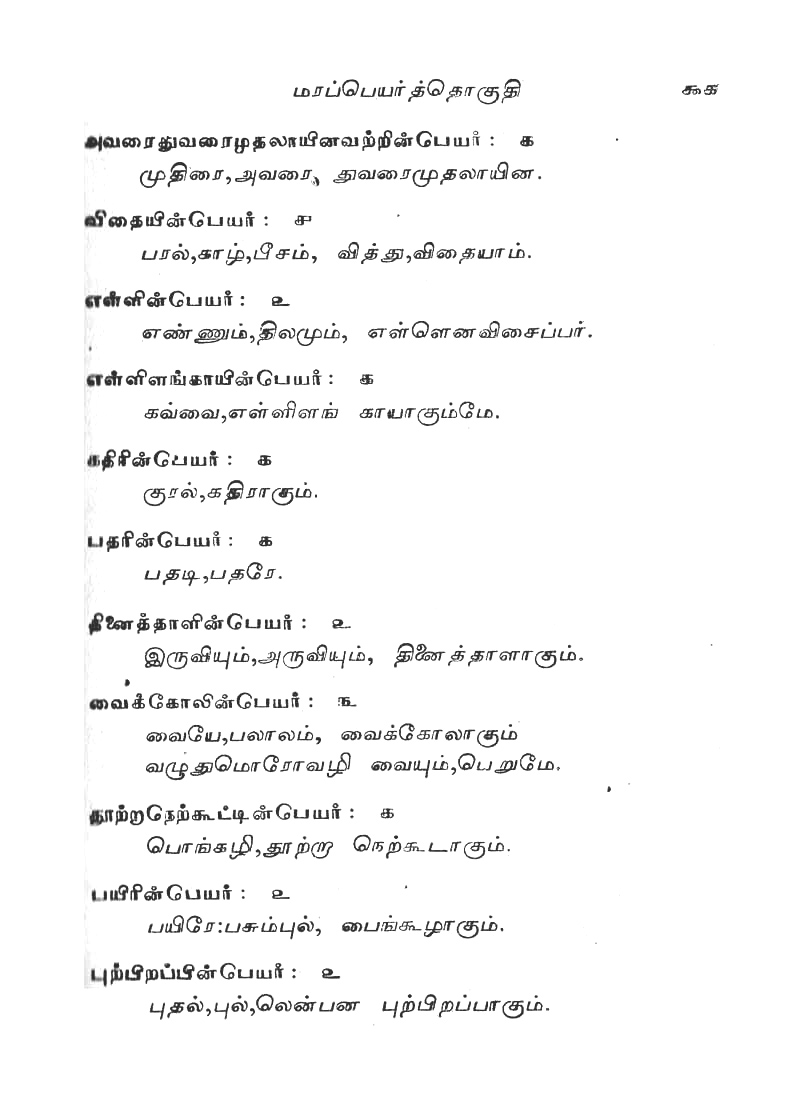 மரப்பெயர்த்தொகுதி ௯௧
அவரைதுவரைமுதலாயினவற்றின்பெயர் : ௧
முதிரை,அவரை, துவரைமுதலாயின.
விதையின்பெயர் : ௪
பரல்,காழ்,பீசம், வித்து,விதையாம்.
எள்ளின்பெயர் : ௨
எண்ணும்,திலமும், எள்ளெனவிசைப்பர்.
எள்ளிளங்காயின்பெயர் : ௧
கவ்வை,எள்ளிளங் காயாகும்மே.
கதிரின்பெயர் : ௧
குரல்,கதிராகும்.
பதரின்பெயர் : ௧
பதடி,பதரே.
தினைத்தாளின்பெயர் : ௨
இருவியும்,அருவியும், தினைத்தாளாகும்.
வைக்கோலின்பெயர் : ௩
வையே,பலாலம், வைக்கோலாகும்
வழுதுமொரோவழி வையும்,பெறுமே.
தூற்றநெற்கூட்டின்பெயர் : ௧
பொங்கழி,தூற்றா நெற்கூடாகும்.
பயிரின்பெயர் : ௨
பயிரே:பசும்புல், பைங்கூழாகும்.
புற்பிறப்பின்பெயர் : ௨
புதல்,புல்,லென்பன புற்பிறப்பாகும்.